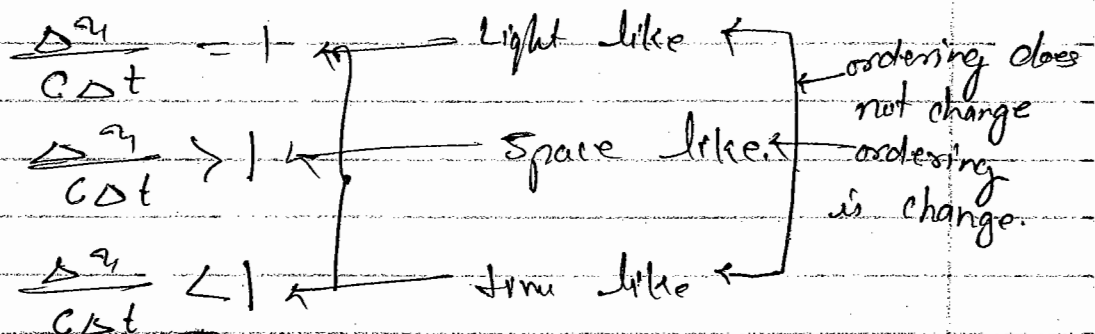 Δx/CΔt = 1 ← Light like ← ordering does not change
Δx/CΔt > 1 ← Space like. ← ordering is change.
Δx/CΔt < 1 ← time like ←